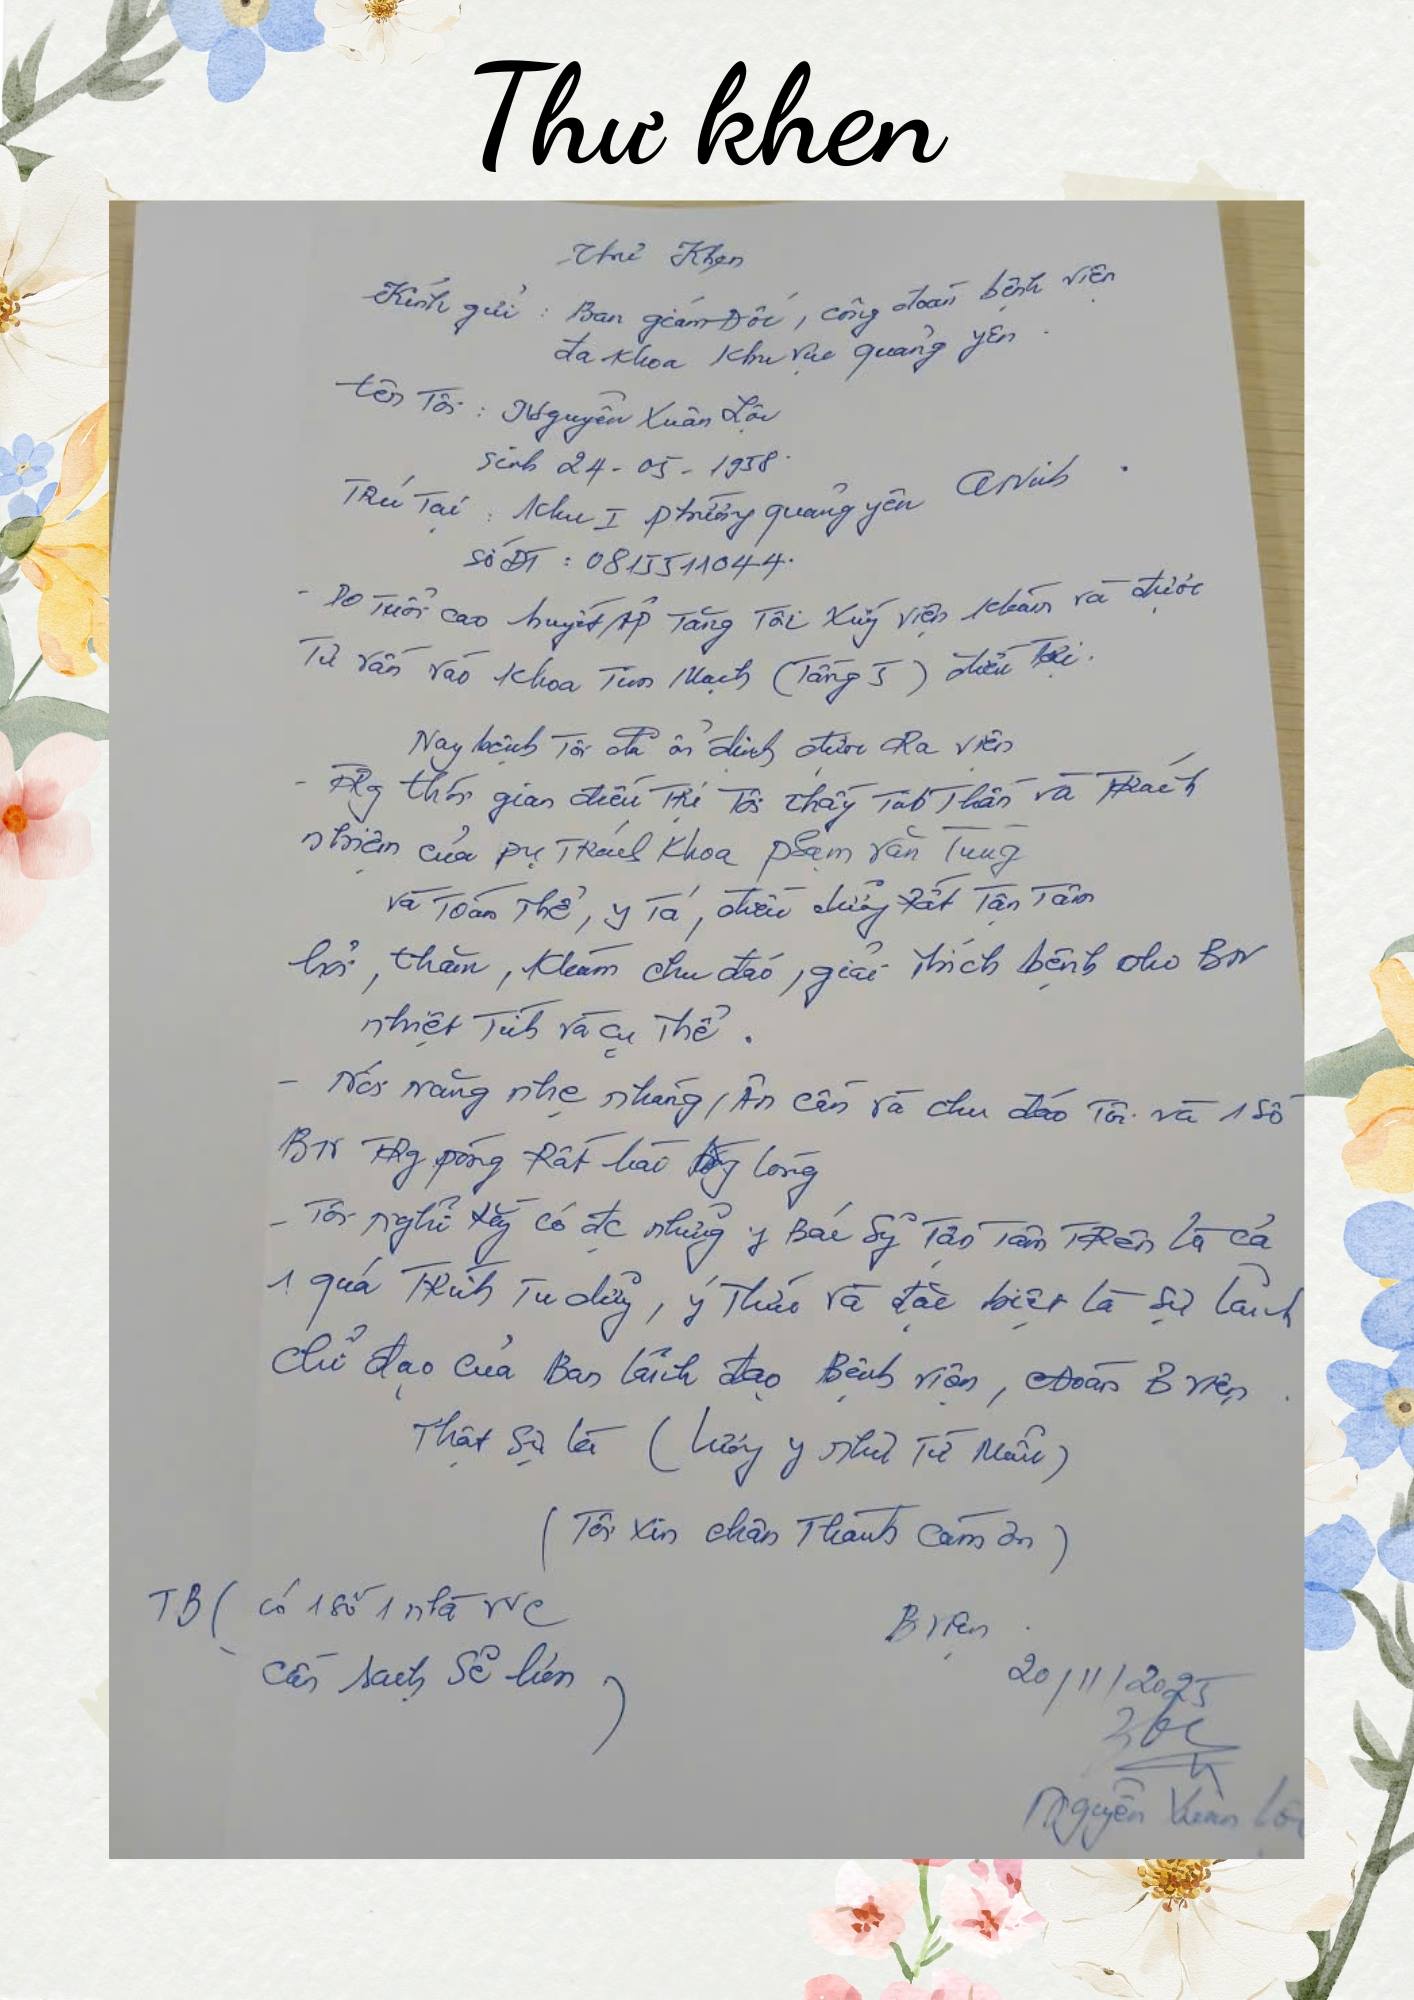 Thư khen
Thư Khen
Kính gửi : Ban giám Đốc, công đoàn bệnh viện
đa khoa khu vực quảng yên.
tên Tôi : Nguyễn Xuân Lộc
Sinh 24-05-1958.
Trú Tại : Khu I phường quảng yên QNinh.
Số ĐT : 0815511044.
- Do Tuổi cao huyết Áp Tăng Tôi Xuống viện khám và được
Tư vấn vào Khoa Tim Mạch (Tầng 5) điều Trị.
Nay bệnh Tôi đã ổn định được Ra viện
- TRg thời gian điều Trị Tôi thấy Tinh Thần và Trách
nhiệm của pụ Trách Khoa phạm văn Tung
và Toàn Thể, y Tá, điều dưỡng Rất Tận Tâm
hỏi, thăm, Khám chu đáo, giải thích bệnh cho BN
nhiệt Tình và cụ Thể.
- Nói năng nhẹ nhàng, Ân cần và chu đáo Tôi và 1 Số
BN TRg pòng Rất hài lòng
- Tôi nghĩ Rằng có đc những y Bác Sỹ Tận Tâm TRên là cả
1 quá Trình Tu dưỡng, ý Thức và đặc biệt là Sự lãnh
chỉ đạo của Ban lãnh đạo Bệnh viện, Đoàn B viện.
Thật Sự là (lương y như Từ Mẫu)
(Tôi Xin chân Thành Cảm ơn)
TB ( có 1 số 1 nhà WC
cần sạch Sẽ hơn )
B viện.
20/11/2025
Nguyễn Xuân Lộc